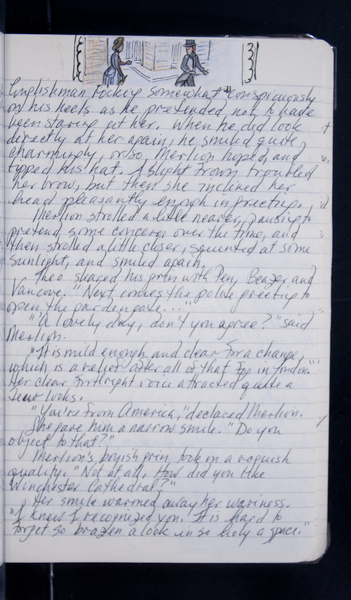 Englishman rocking somewhat conspicuously
on his heels as he pretended not to have
been staring at her. When he did look
directly at her again, he smiled quite
charmingly, or so Merlion hoped, and
tipped his hat. A slight frown troubled
her brow, but then she inclined her
head pleasantly enough in greeting.
Merlion strolled a little nearer, pausing to
pretend some concern over the time, and
then strolled a little closer, squinted at some
sunlight, and smiled again.
Theo shared his grin with Pen, Beazer and
Vancove. "Next comes the polite greeting to
open the garden gate..."
"A lovely day, don't you agree?" said
Merlion.
"It is mild enough and clear for a change,
which is a relief after all of that fog in London."
Her clear forthright voice attracted quite a
few looks.
"You're from America," declared Merlion.
She gave him a narrow smile. "Do you
object to that?"
Merlion's boyish grin took on a roguish
quality. "Not at all. How did you like
Winchester Cathedral?"
Her smile warmed away her wariness.
"I knew I recognized you. It is hard to
forget so brazen a look in so holy a space."